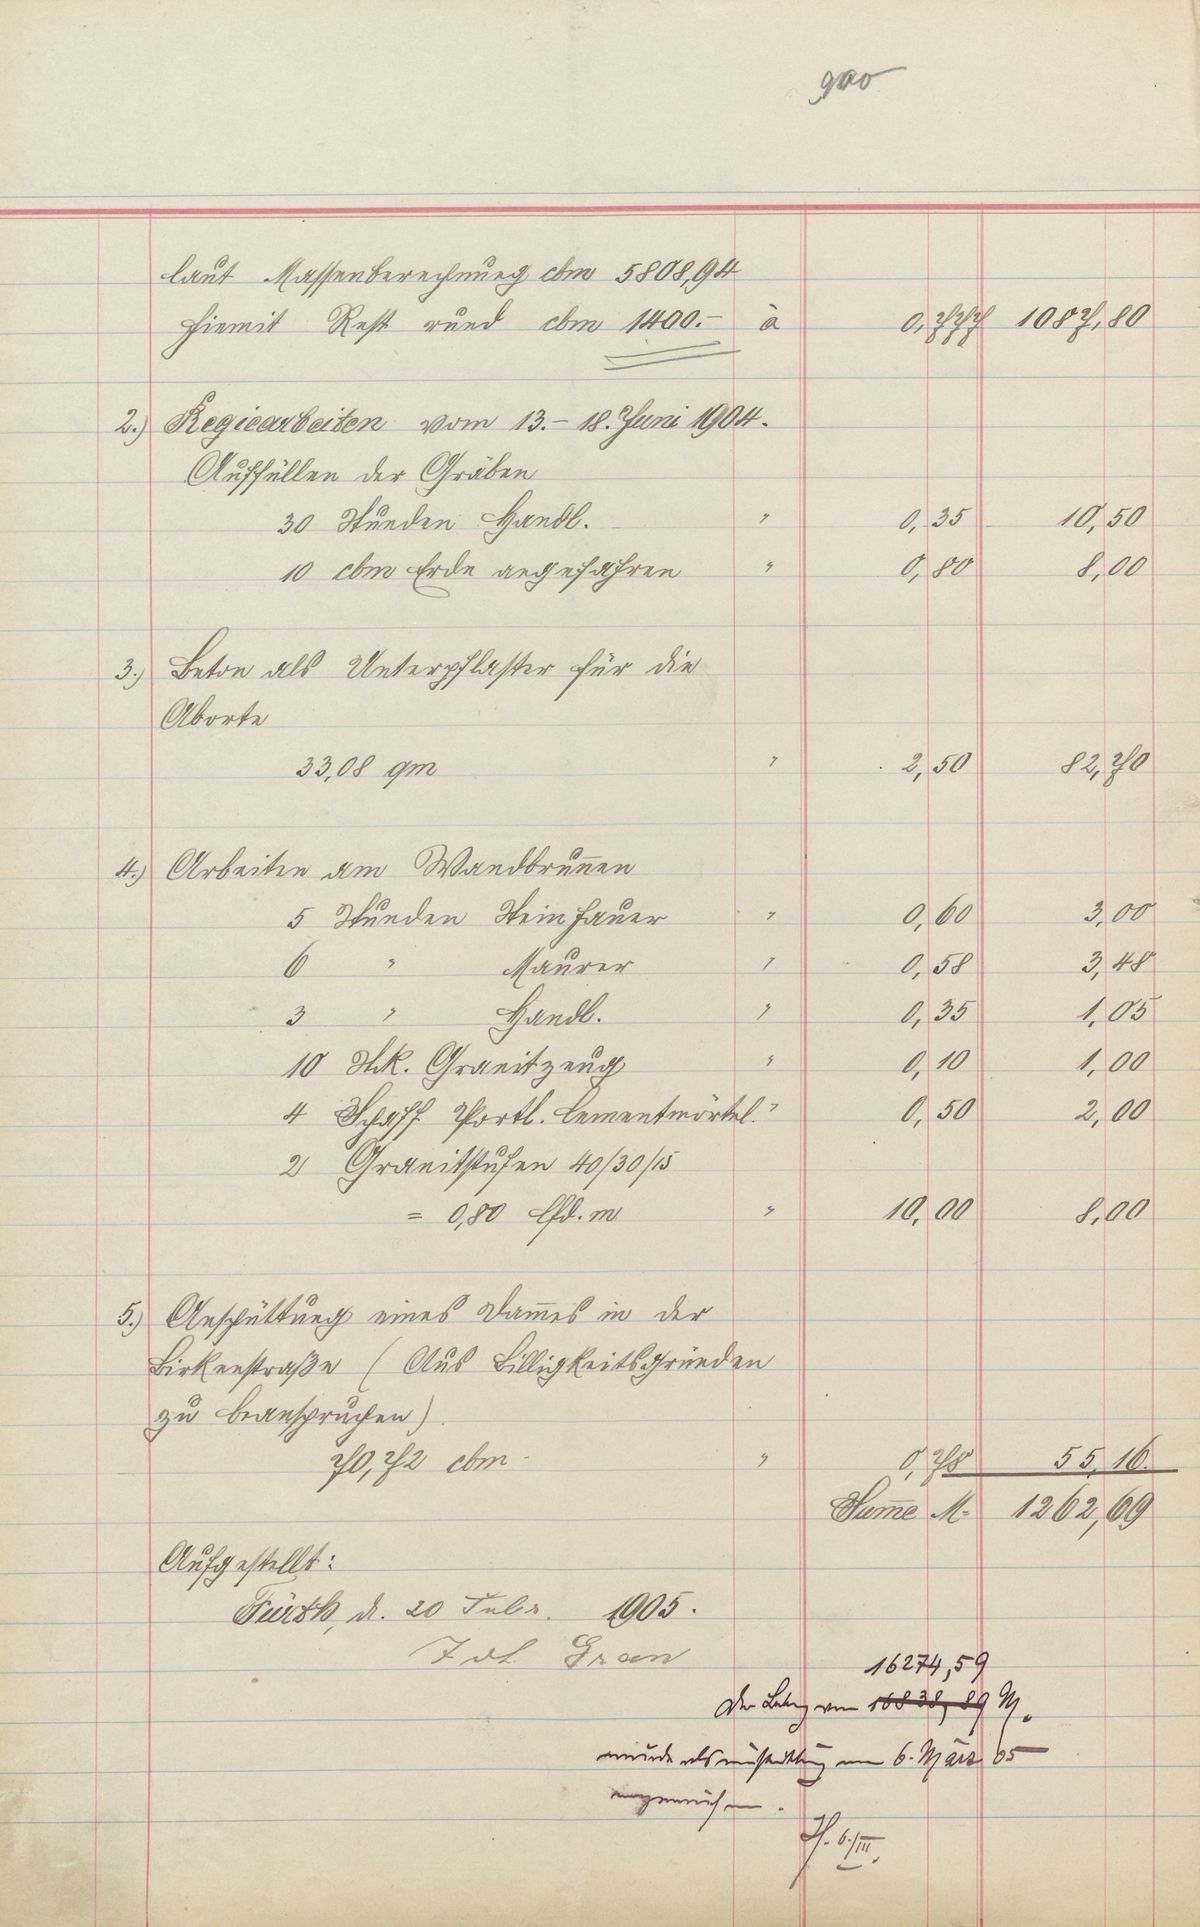 900
laut Massenberechnung cbm 5808,94
hiemit Rest rund cbm 1400.- à 0,777 1087,80
2.) Regiearbeiten vom 13.- 18. Juni 1904.
Auffüllen der Gräben
30 Stunden Handl. " 0,35 10,50
10 cbm Erde angefahren " 0,80 8,00
3.) Beton als Unterpflaster für die
Aborte
33,08 qm " 2,50 82,70
4.) Arbeiten am Wandbrun̅en
5 Stunden Steinhauer " 0,60 3,00
6 " Maurer " 0,58 3,48
3 " Handl. " 0,35 1,05
10 Stk. Granitzeug " 0,10 1,00
4 Schaff Portl. Cementmörtel. " 0,50 2,00
2 Granitstufen 40/30/15
= 0,80 lfd. m " 10,00 8,00
5.) Anschüttung eines Dam̅es in der
Birkenstraße (Aus Billigkeitsgründen
zu beanspruchen)
70,72 cbm " 0,78 55,16.
Sum̅e M. 1262,69
Aufgestellt:
Fürth, d. 20 Febr. 1905.
Gran
16274,59
Der Betrag von 16838,89 M.
wurde als am 6. März 05
angewiesen.
6./III.